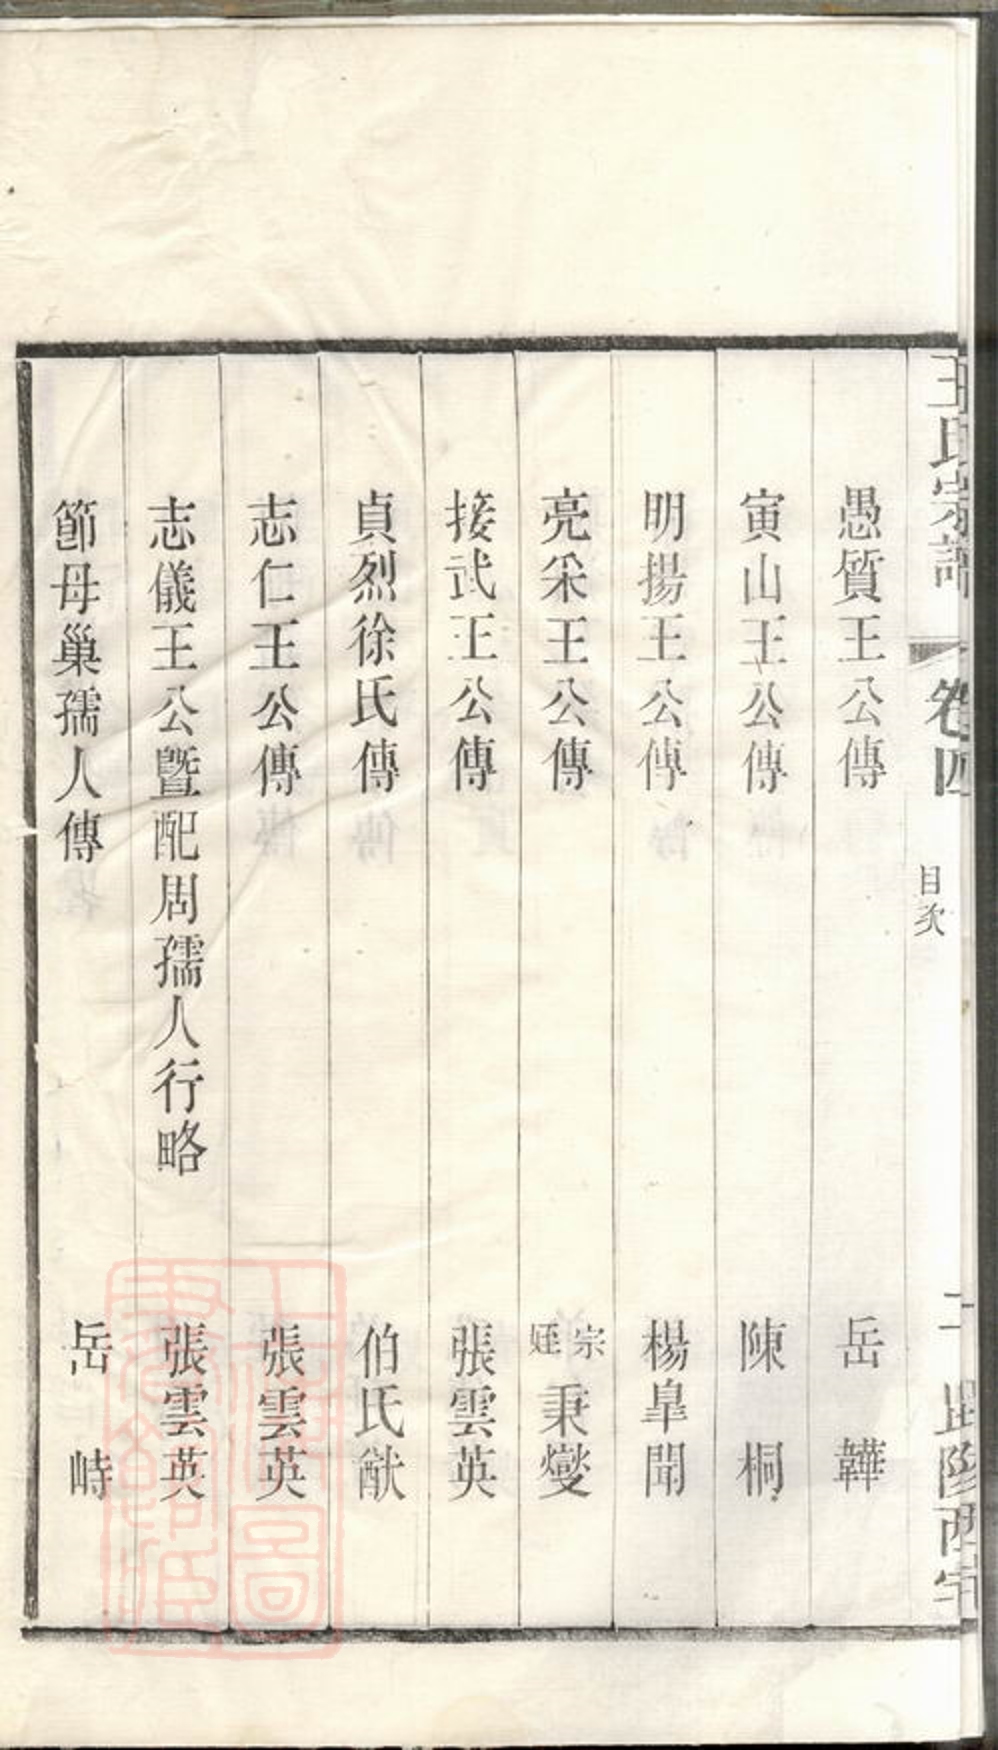 王氏宗譜 卷四 目次 二 毗陵西
愚質王公傳 岳韡
寅山王公傳 陳桐
明揚王公傳 楊臯聞
亮采王公傳 宗姪秉燮
接武王公傳 張雲英
貞烈徐氏傳 伯氏猷
志仁王公傳 張雲英
志儀王公暨配周孺人行略 張雲英
節母巢孺人傳 岳峙
上海圖書館藏